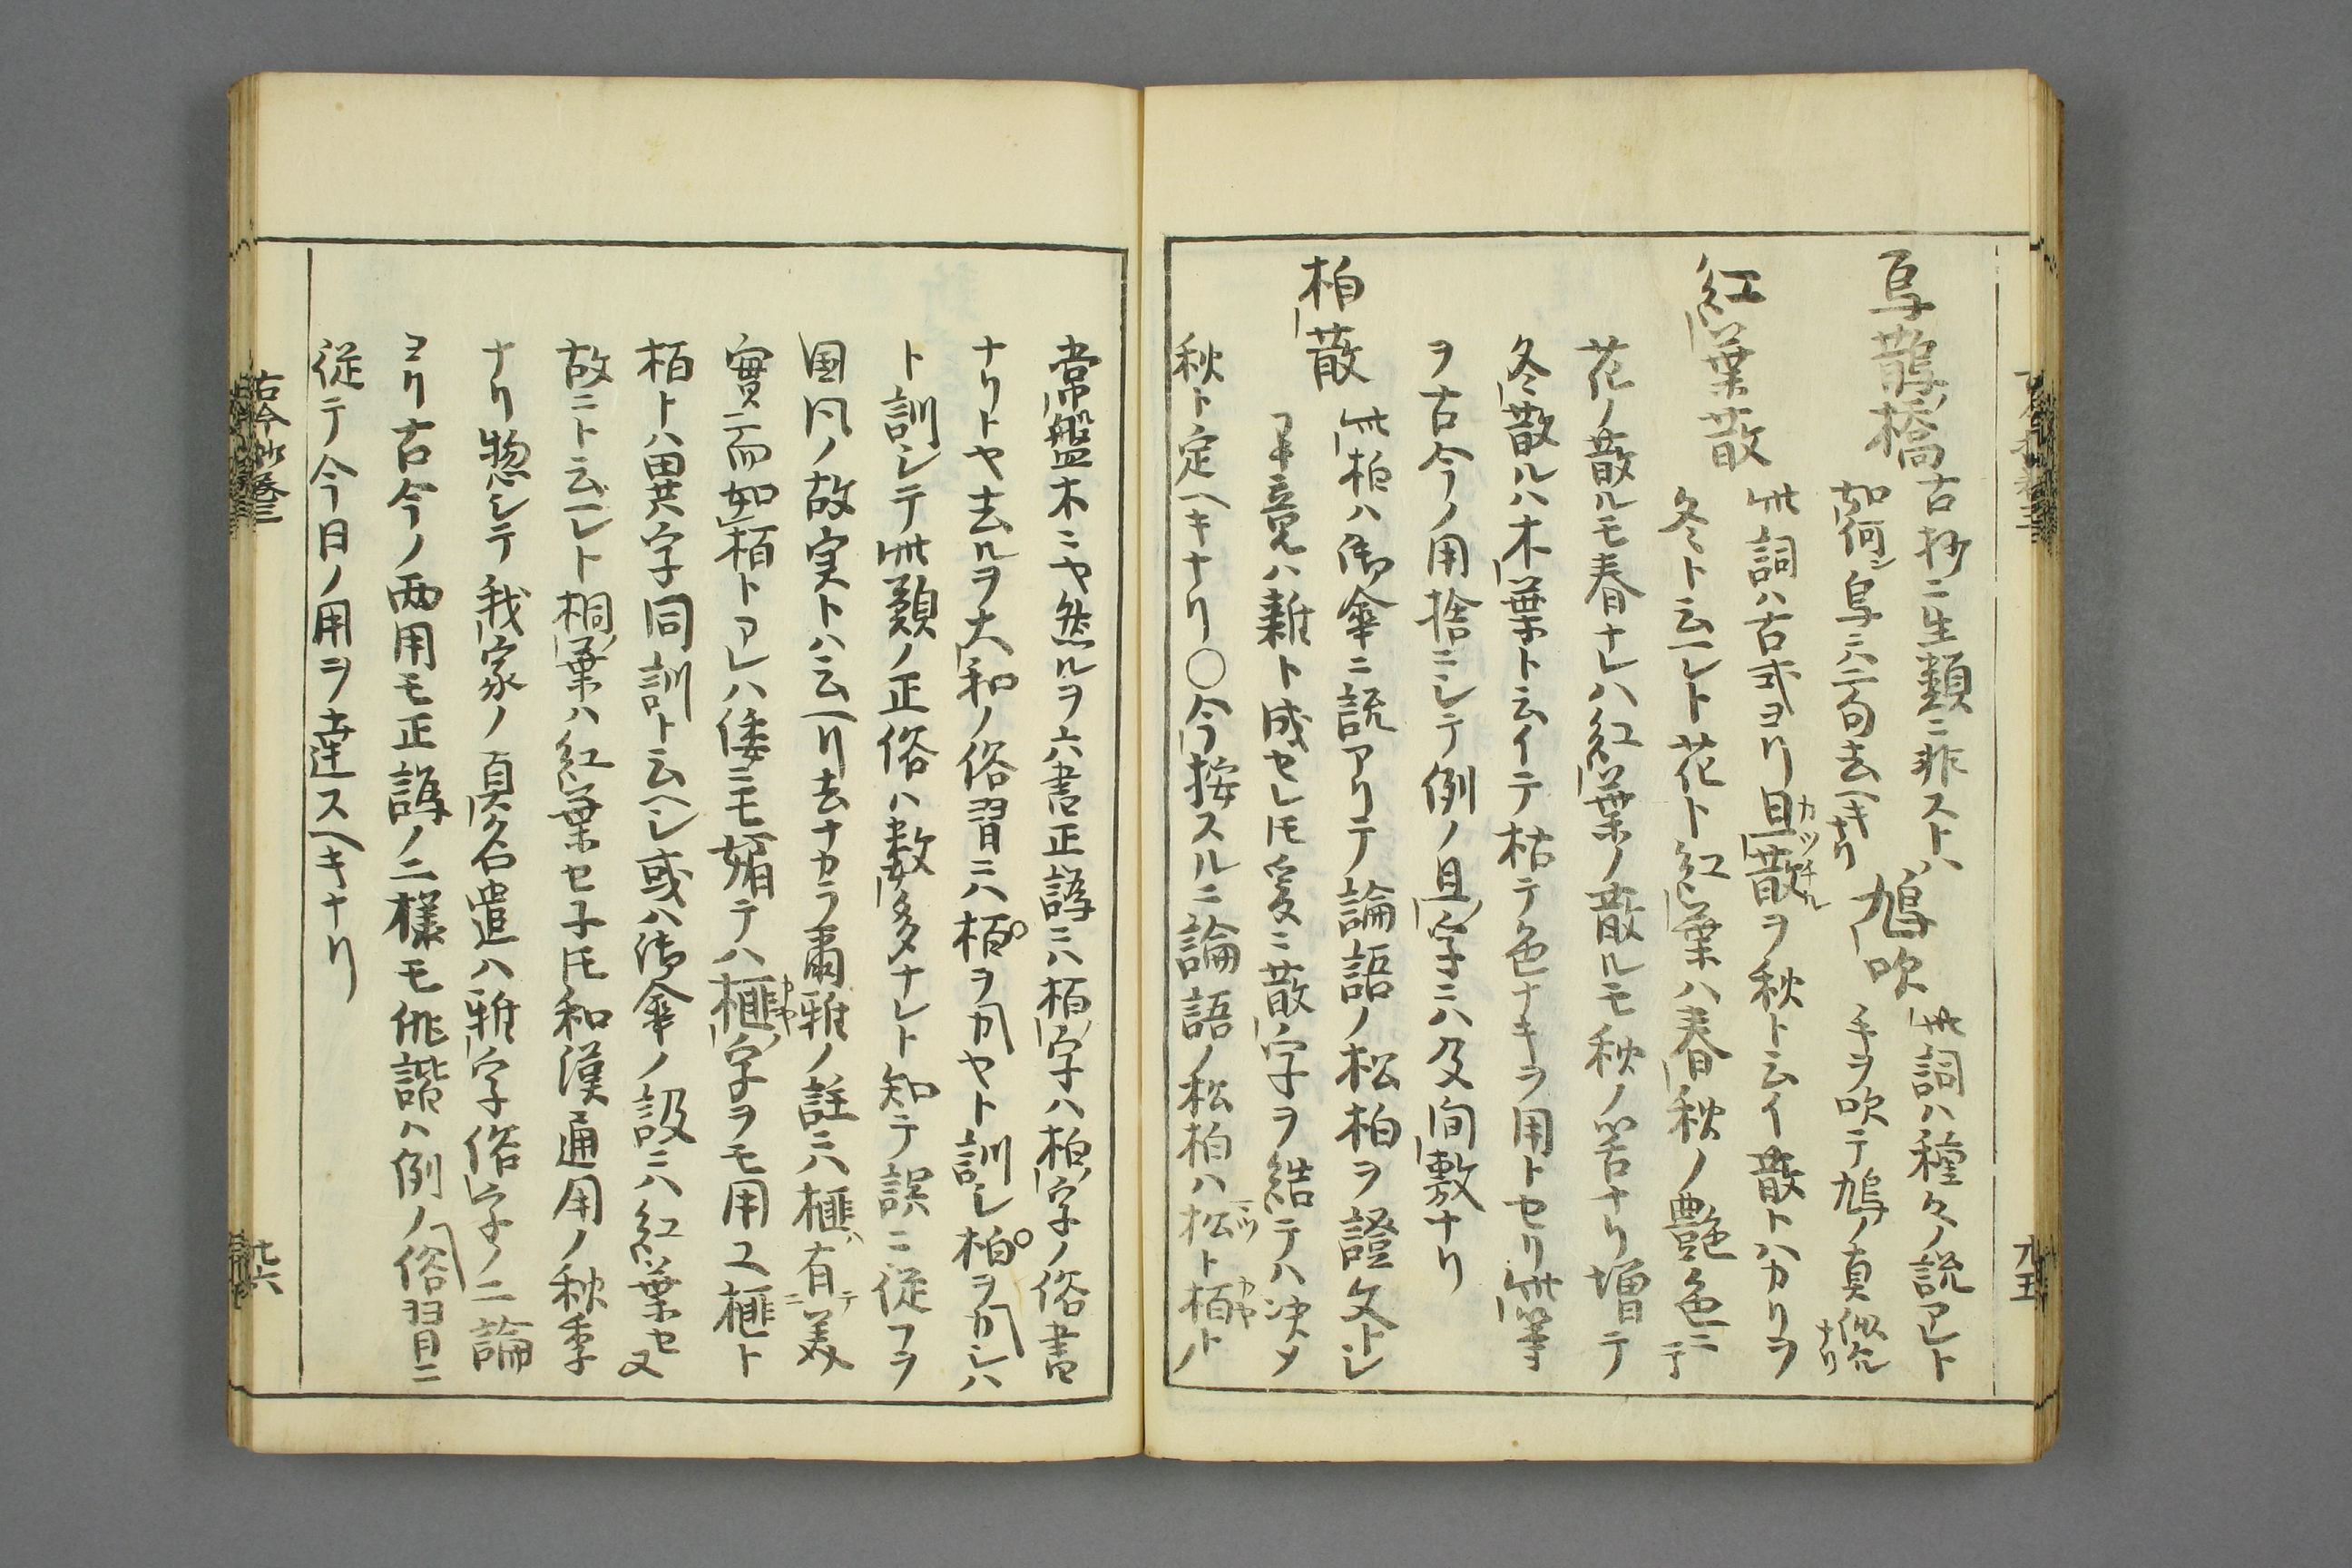 烏鵲橋 古抄ニ生類ニ非ストハ
如何ン鳥ニハ二句去ヘキナリ
鳩吹 此詞ハ種々ノ説アレト
手ヲ吹テ鳩ノ真似ルナリ
紅葉散 此詞ハ古式ヨリ且散ヲ秋ト云イ散トハカリヲ
カツチル
冬ト云ヘレト花ト紅葉ハ春秋ノ艶色ニテ
花ノ散ルモ春ナレハ紅葉ノ散ルモ秋ノ筈ナリ増テ
冬散ルハ木葉ト云イテ枯テ色ナキヲ用トセリ此等
ヲ古今ノ用捨ニシテ例ノ且字ニハ及間敷ナリ
柏散 此柏ハ御傘ニ説アリテ論語ノ松柏ヲ證文トシ
了意ハ雑ト成セレ𪜈爰ニ散字ヲ結テハ决メ
秋ト定ヘキナリ〇今按スルニ論語ノ松柏ハ松ト栢トノ
二ツ
カヤ
常盤木ニヤ然ルヲ六書正譌ニハ栢字ハ柏字ノ俗書
ナリトヤ去ルヲ大和ノ俗習ニハ栢ヲカヤト訓シ柏ヲカシハ
ト訓シテ此類ノ正俗ハ数多ナレト知テ誤ニ従フヲ
国凡ノ故実トハ云ヘリ去ナカラ爾雅ノ註ニハ榧ハ有テ美
實ニ而如栢トアレハ倭ニモ媚テハ榧字ヲモ用ユ榧ト
カヤ
栢トハ由共字同訓ト云ヘシ或ハ御傘ノ説ニハ紅葉セヌ
故ニト云ヘレト桐葉ハ紅葉セ子𪜈和漢通用ノ秋季
ナリ惣シテ我家ノ真名遣ハ雅字俗字ノ二論
ヨリ古今ノ両用モ正譌ノ二様モ俳諧ハ例ノ俗習ニ
従テ今日ノ用ヲ達スヘキナリ
古今抄巻三
九五